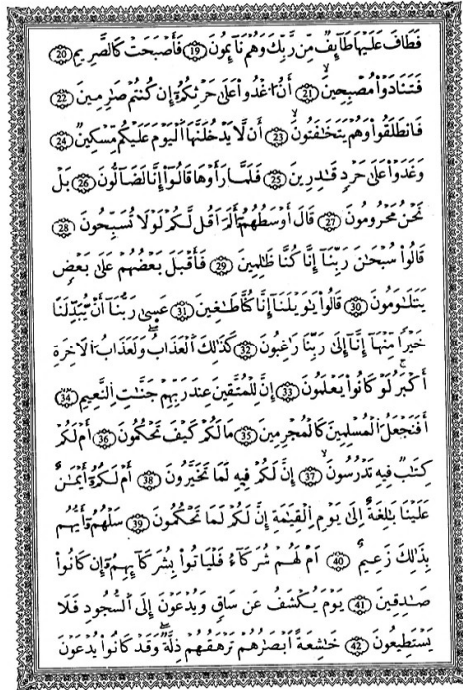 فَطَافَ عَلَيْهَا طَآئِفٌ مِّن رَّبِّكَ وَهُمْ نَآئِمُونَ 19 فَأَصْبَحَتْ كَالصَّرِيمِ 20
فَتَنَادَوْا۟ مُصْبِحِينَ 21 أَنُ اغْدُوا۟ عَلَىٰ حَرْثِكُمُۥٓ إِن كُنتُمْ صَٰرِمِينَ 22
فَانطَلَقُوا۟ وَهُمْ يَتَخَٰفَتُونَ 23 أَن لَّا يَدْخُلَنَّهَا الْيَوْمَ عَلَيْكُم مِّسْكِينٌ 24
وَغَدَوْا۟ عَلَىٰ حَرْدٍ قَٰدِرِينَ 25 فَلَمَّا رَأَوْهَا قَالُوٓا۟ إِنَّا لَضَآلُّونَ 26 بَلْ
نَحْنُ مَحْرُومُونَ 27 قَالَ أَوْسَطُهُمُۥٓ أَلَمَ اَقُل لَّكُمْ لَوْلَا تُسَبِّحُونَ 28
قَالُوا۟ سُبْحَٰنَ رَبِّنَآ إِنَّا كُنَّا ظَٰلِمِينَ 29 فَأَقْبَلَ بَعْضُهُمْ عَلَىٰ بَعْضٍ
يَتَلَٰوَمُونَ 30 قَالُوا۟ يَٰوَيْلَنَآ إِنَّا كُنَّا طَٰغِينَ 31 عَسَىٰ رَبُّنَآ أَنْ يُّبَدِّلَنَا
خَيْرًا مِّنْهَآ إِنَّآ إِلَىٰ رَبِّنَا رَٰغِبُونَ 32 كَذَٰلِكَ الْعَذَابُ وَلَعَذَابُ الَاخِرَةِ
أَكْبَرُ لَوْ كَانُوا۟ يَعْلَمُونَ 33 إِنَّ لِلْمُتَّقِينَ عِندَ رَبِّهِمْ جَنَّٰتِ النَّعِيمِ 34
أَفَنَجْعَلُ الْمُسْلِمِينَ كَالْمُجْرِمِينَ 35 مَا لَكُمْ كَيْفَ تَحْكُمُونَ 36 أَمْ لَكُمْ
كِتَٰبٌ فِيهِ تَدْرُسُونَ 37 إِنَّ لَكُمْ فِيهِ لَمَا تَخَيَّرُونَ 38 أَمْ لَكُمُۥٓ أَيْمَٰنٌ
عَلَيْنَا بَٰلِغَةٌ إِلَىٰ يَوْمِ الْقِيَٰمَةِ إِنَّ لَكُمْ لَمَا تَحْكُمُونَ 39 سَلْهُمُۥٓ أَيُّهُم
بِذَٰلِكَ زَعِيمٌ 40 أَمْ لَهُمْ شُرَكَآءُ فَلْيَاتُوا۟ بِشُرَكَآئِهِمُۥٓ إِن كَانُوا۟
صَٰدِقِينَ 41 يَوْمَ يُكْشَفُ عَن سَاقٍ وَيُدْعَوْنَ إِلَى السُّجُودِ فَلَا
يَسْتَطِيعُونَ 42 خَٰشِعَةً أَبْصَٰرُهُمْ تَرْهَقُهُمْ ذِلَّةٌ وَقَدْ كَانُوا۟ يُدْعَوْنَ